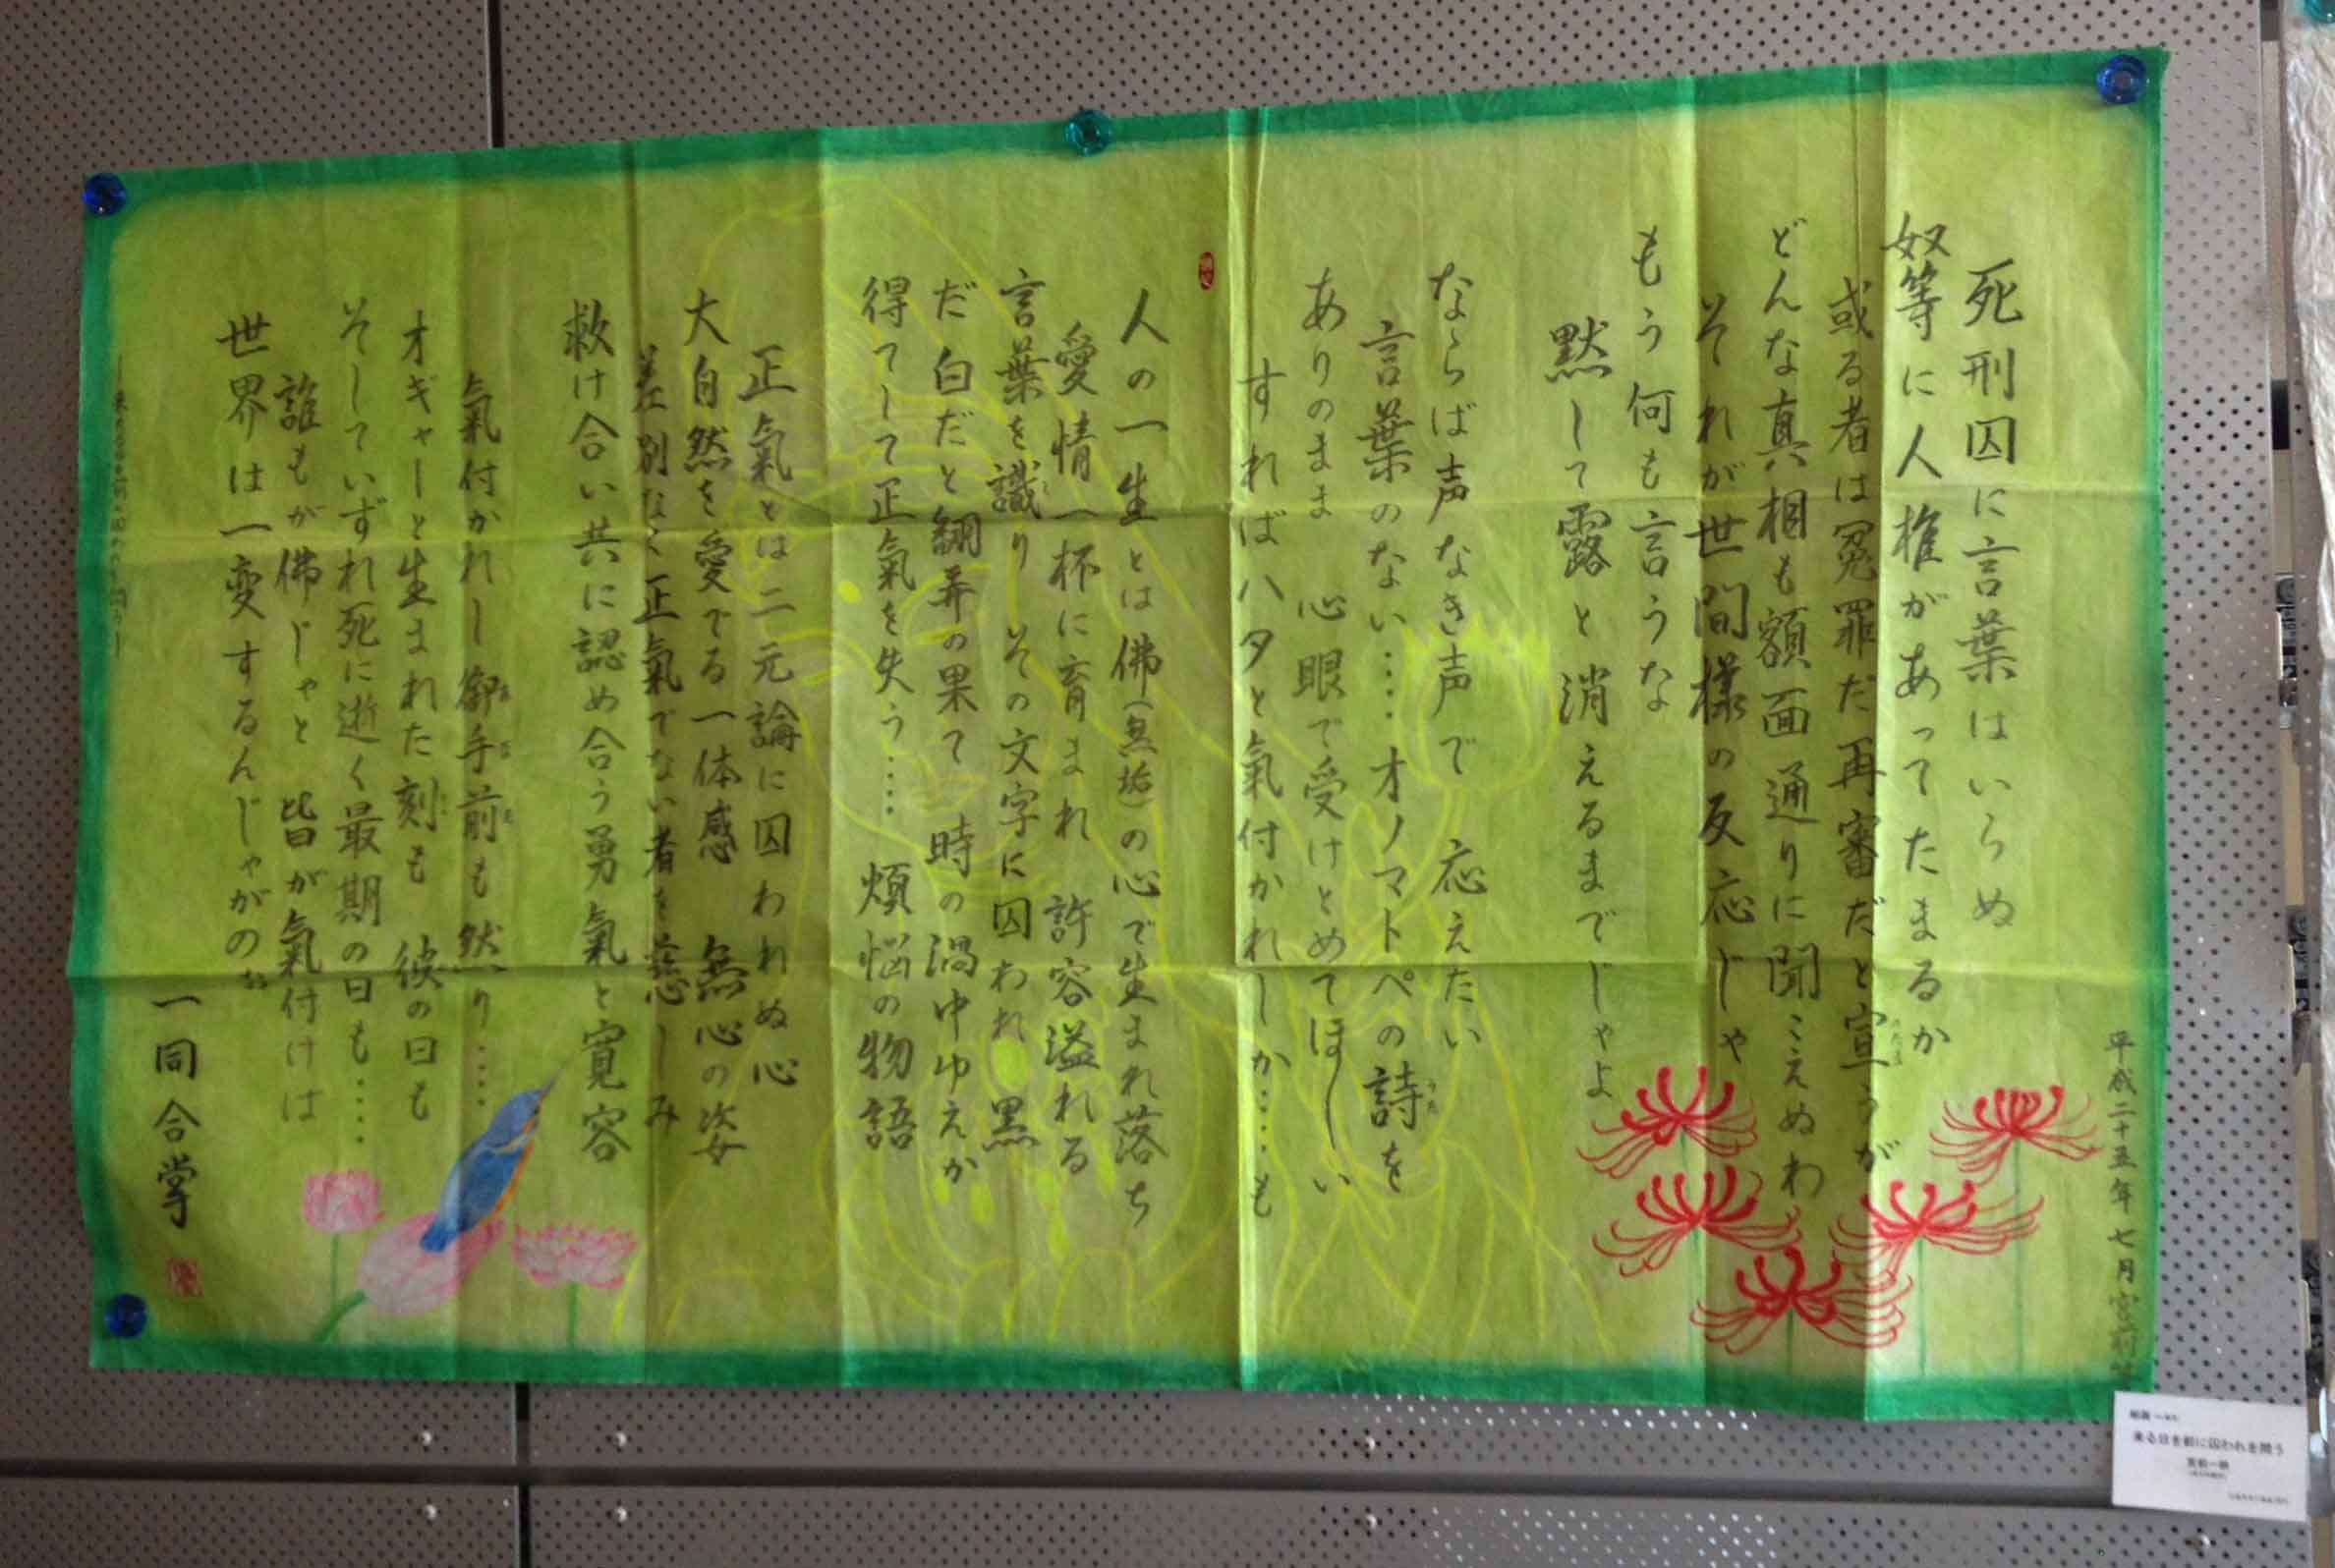 平成二十五年七月
死刑囚に言葉はいらぬ
奴等に人権があってたまるか
或る者は冤罪だ再審だと宣うが
どんな真相も額面通りに聞こえぬわ
それが世間様の反応じゃ
もう何も言うな
黙して露と消えるまでじゃよ
ならば声なき声で 応えたい
言葉のない‥‥オノマトペの詩を
ありのまま 心眼で受けとめてほしい
すればハタと氣付かれしか‥‥も
人の一生とは佛(無垢)の心で生まれ落ち
愛情一杯に育まれ 許容溢れる
言葉を識り その文字に囚われ 黒
だ白だと翻弄の果て 時の渦中ゆえか
得てして正氣を失う‥‥ 煩悩の物語
正氣とは二元論に囚われぬ心
大自然を愛でる一体感 無心の姿
差別なく正氣でない者を慈しみ
救け合い共に認め合う勇氣と寛容
氣付かれし御手前も然り‥‥
オギャーと生まれた刻も 彼の日も
そしていずれ死に逝く最期の日も‥‥
誰もが佛じゃと 皆が氣付けば
世界は一変するんじゃがのぉ
一同合掌
来る日を前に囚われを問う